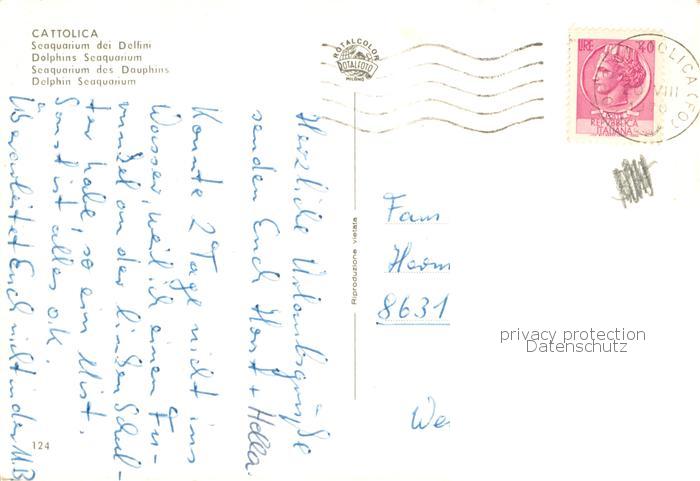 CATTOLICA
Seaquarium dei Delfini
Dolphins Seaquarium
Seaquarium des Dauphins
Delphin Seaquarium
ROTALCOLOR
ROTALFOTO
MILANO
LIRE 40
REPUBBLICA
ITALIANA
CATTOLICA (FO)
VIII
Herzliche Urlaubsgrüße
senden Euch Horst + Hella.
Konnte 2 Tage nicht ins
Wasser, weil ich einen Fu-
runkel an der linken Schul-
ter habe, so ein Mist.
Sonst ist alles o.K.
Überarbeitet Euch nicht in der M.B
Riproduzione vietata
Fam
Herm
8631
We
privacy protection
Datenschutz
124